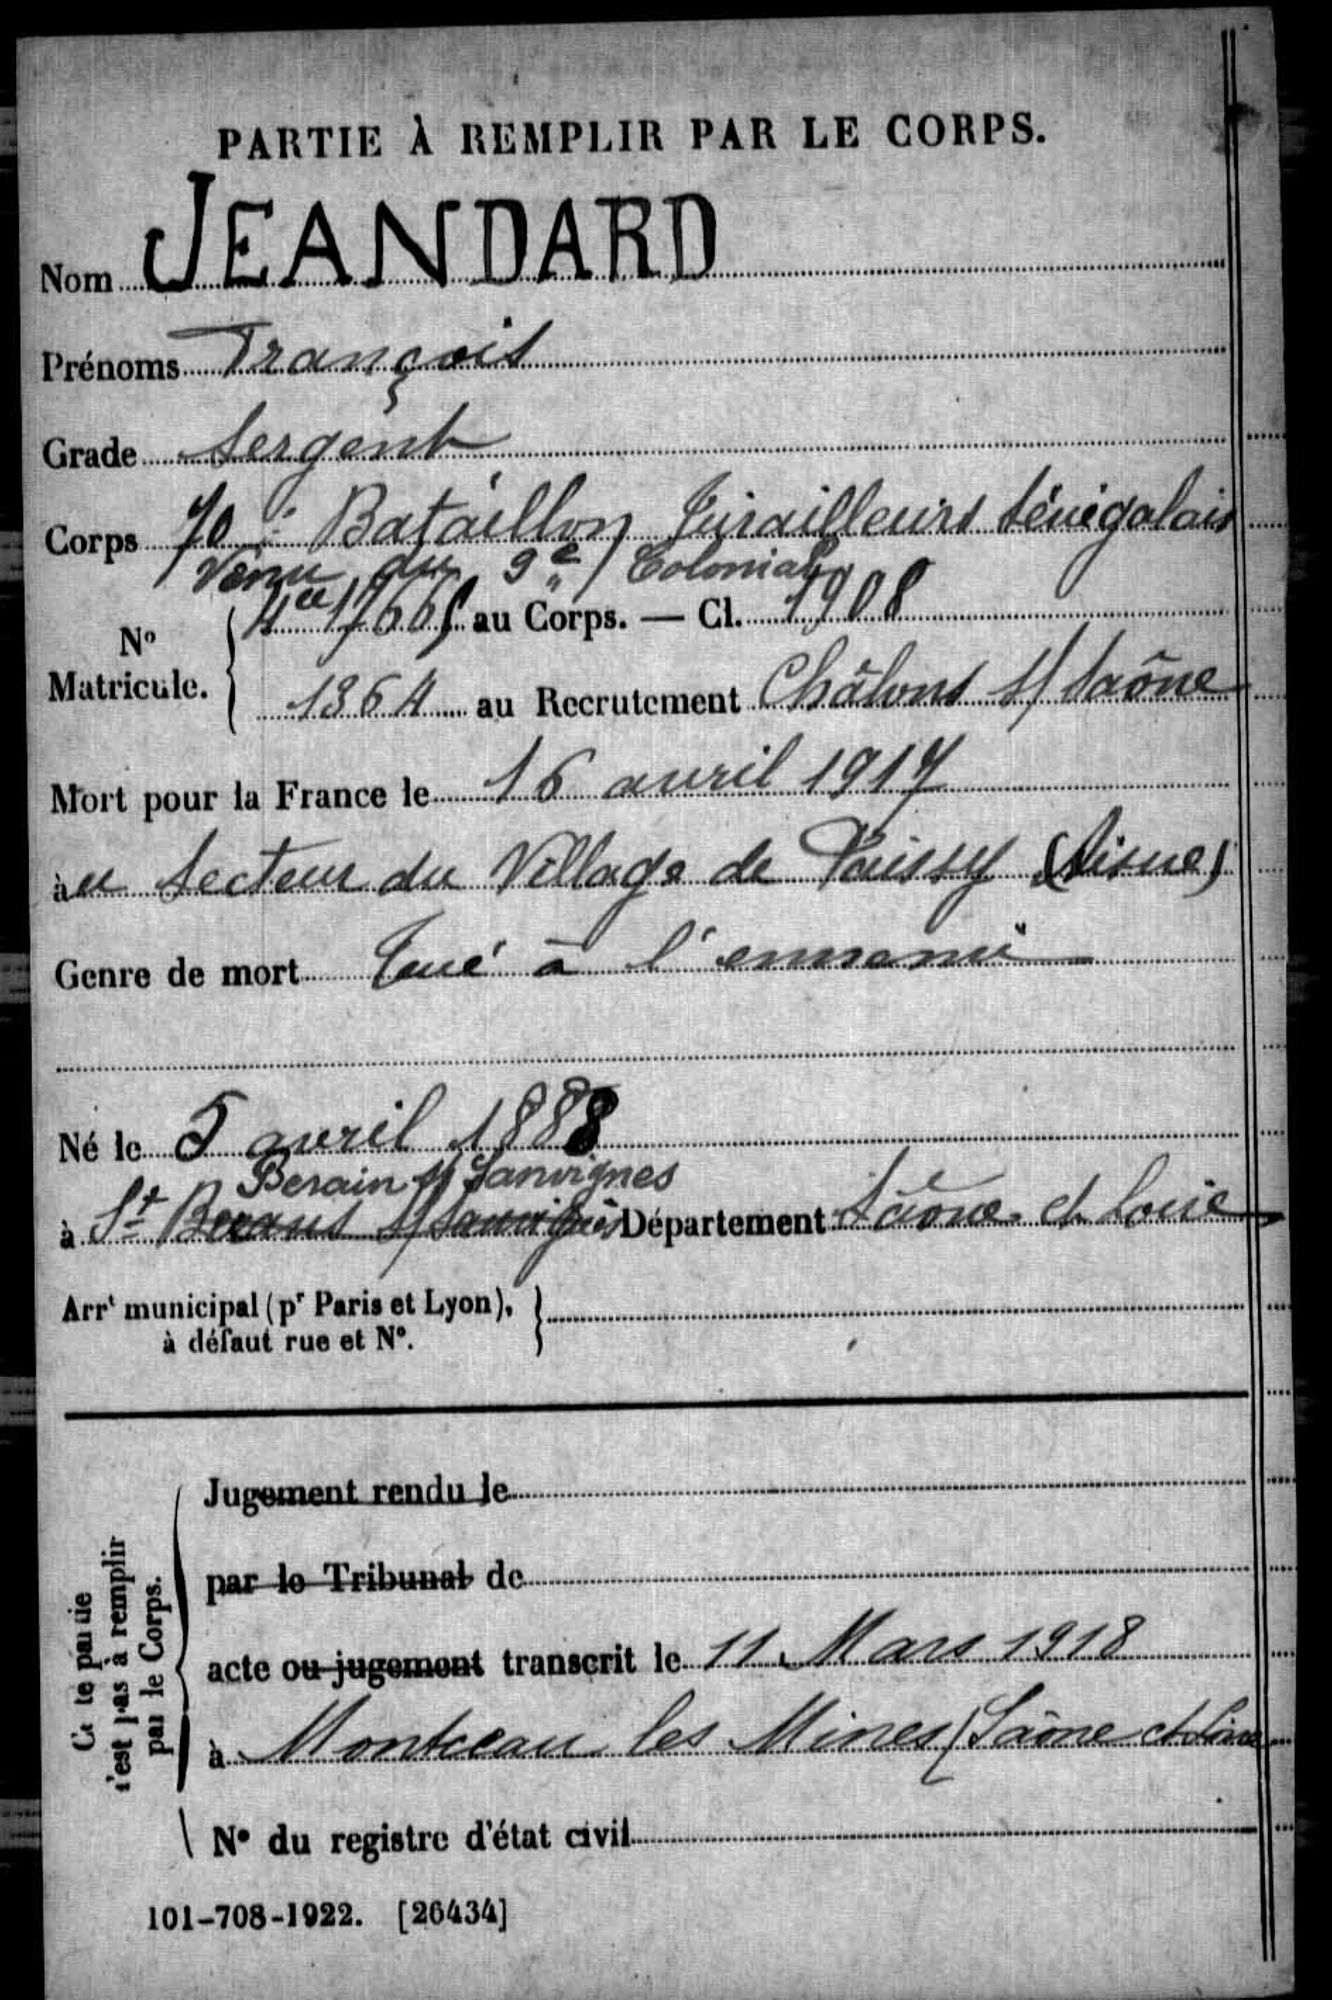 PARTIE À REMPLIR PAR LE CORPS.
Nom JEANDARD
Prénoms François
Grade Sergent
Corps 70e Bataillon Tirailleurs Sénégalais
Venu du 9e Colonial
No Matricule. 17665 au Corps. — Cl. 1908
1364 au Recrutement Châlons s/ Saône
Mort pour la France le 16 avril 1917
à u Secteur du Village de Paissy (Aisne)
Genre de mort Tué à l'ennemi
Né le 5 avril 1888
Berain s/ Sanvignes
à St Département Saône et Loire
Arrt municipal (pr Paris et Lyon),
à défaut rue et No.
Cette partie
n'est pas à remplir
par le Corps.
Jugement rendu le
par le Tribunal de
acte ou jugement transcrit le 11 Mars 1918
à Montceau les Mines (Saône et Loire
No du registre d'état civil
101-708-1922. [26434]